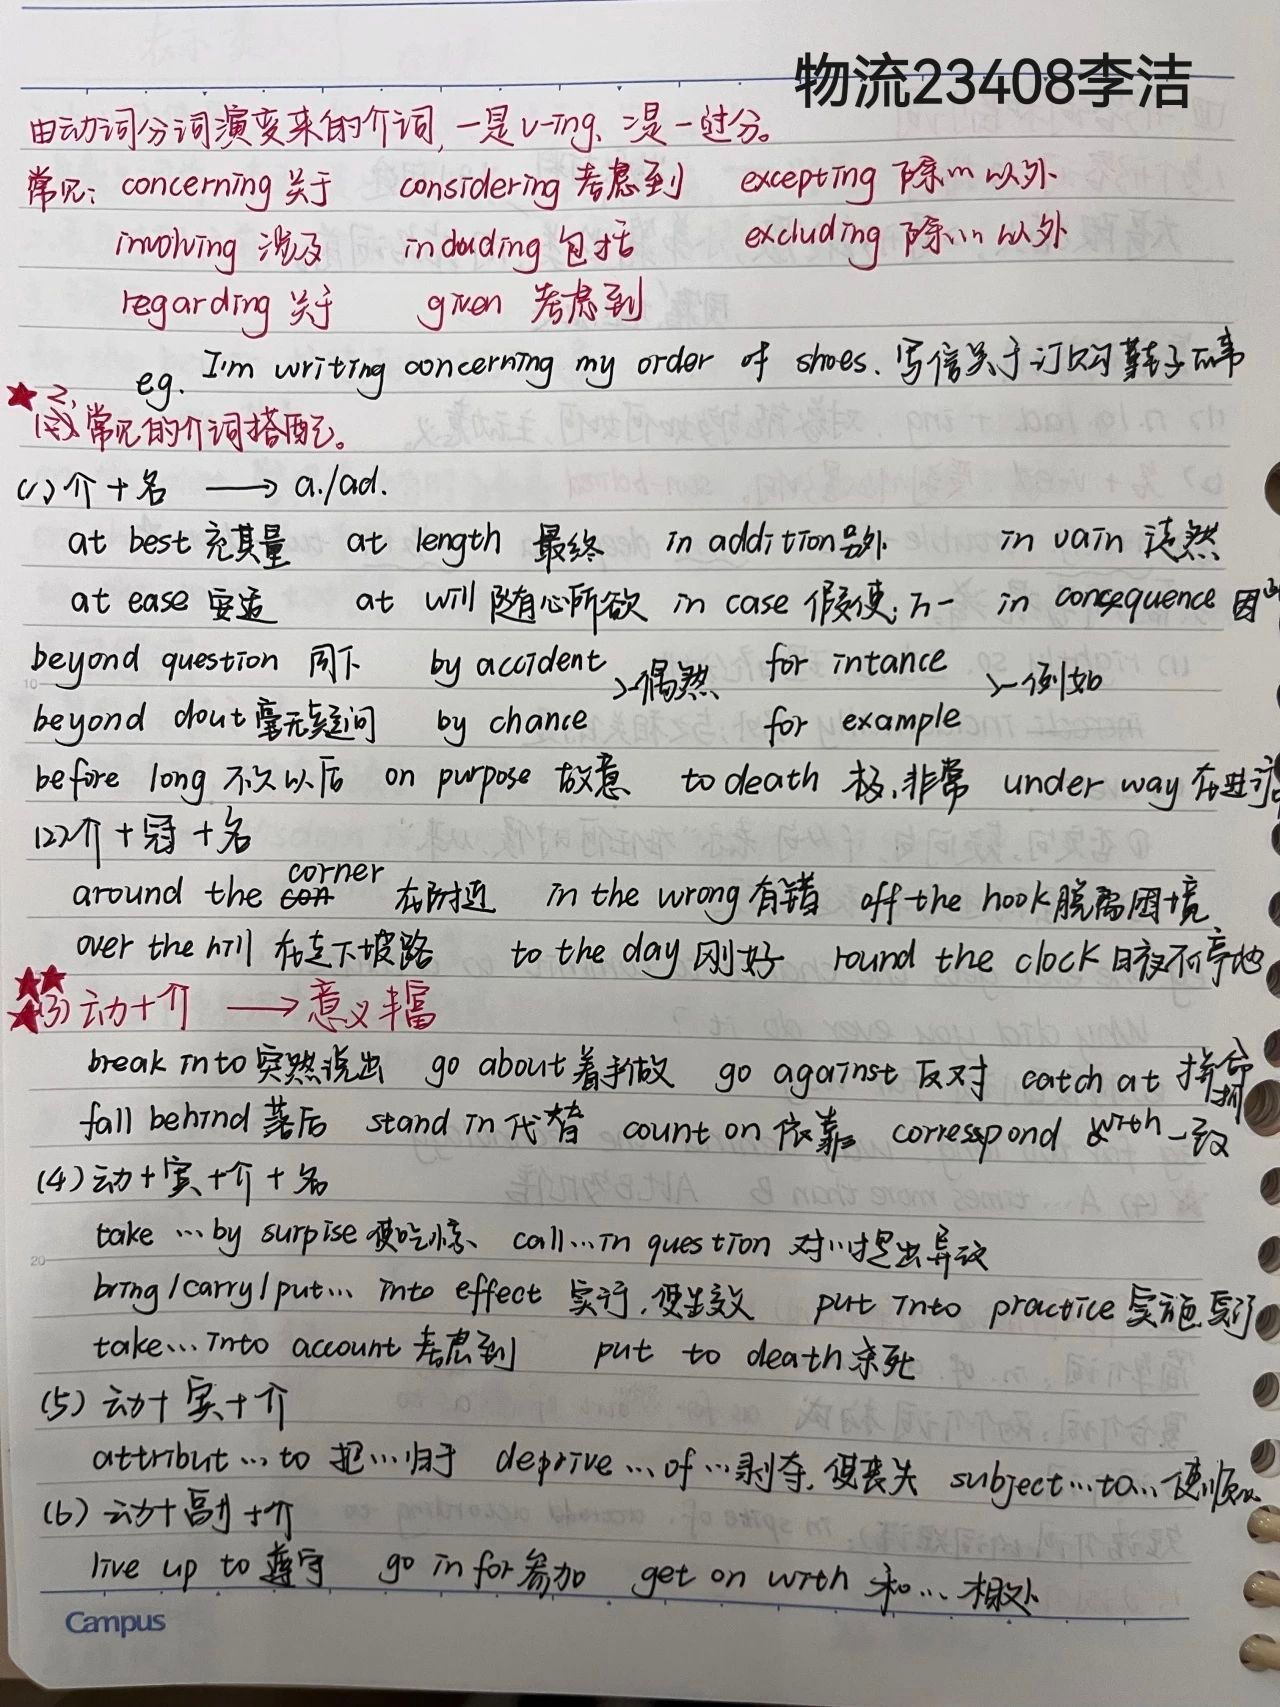 物流23408李洁
由动词分词演变来的介词,一是v-ing、二是一过分。
常见: concerning 关于 considering 考虑到 excepting 除…以外
involving 涉及 including 包括 excluding 除…以外
regarding 关于 given 考虑到
eg. I'm writing concerning my order of shoes. 写信关于订购鞋子的事
2.
常见的介词搭配。
(1)介+名 → a./ad.
at best 充其量 at length 最终 in addition 另外 in vain 徒然
at ease 安适 at will 随心所欲 in case 假使;万一 in consequence 因此
beyond question 同下 by accident >偶然 for intance >例如
beyond dout 毫无疑问 by chance for example
before long 不久以后 on purpose 故意 to death 极,非常 under way 在进行
(2)介+冠+名
around the corner 在附近 in the wrong 有错 off the hook 脱离困境
over the hill 在走下坡路 to the day 刚好 round the clock 日夜不停地
(3)动+介 → 意义丰富
break into 突然说出 go about 着手做 go against 反对 catch at 拼命抓
fall behind 落后 stand in 代替 count on 依靠 correspond with 一致
(4)动+宾+介+名
take …by surpise 使吃惊、 call…in question 对…提出异议
bring/carry/put… into effect 实行,使生效 put into practice 实施 实行
take…into account 考虑到 put to death 杀死
(5)动+宾+介
attribut…to 把…归于 deprive…of…剥夺,使丧失 subject…to…使顺从
(6)动+副+介
live up to 遵守 go in for 参加 get on with 和…相处
10
20
Campus